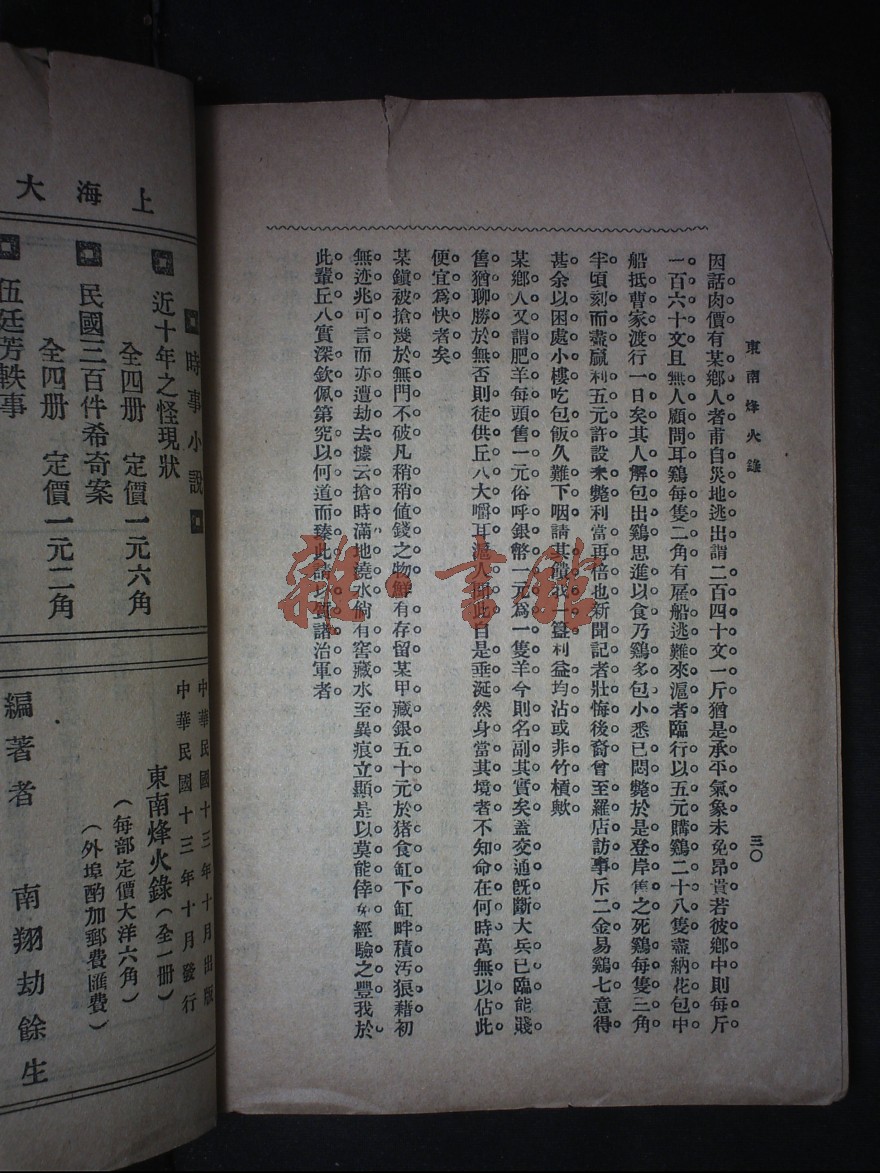 東南烽火錄
三〇
因話肉價有某鄉人者甫自災地逃出謂二百四十文一斤猶是承平氣象未免昂貴若彼鄉中則每斤
一百六十文且無人顧問耳鷄每隻二角有雇船逃難來滬者臨行以五元購鷄二十八隻盡納花包中
船抵曹家渡行一日矣其人解包出鷄思進以食乃鷄多包小悉已悶斃於是登岸售之死鷄每隻三角
半頃刻而盡贏利五元許設未斃利當再倍也新聞記者壯悔後裔曾至羅店訪事斥二金易鷄七意得
甚余以困處小樓吃包飯久難下咽請其饋我一簋利益均沾或非竹槓歟
某鄉人又謂肥羊每頭售一元俗呼銀幣一元爲一隻羊今則名副其實矣蓋交通旣斷大兵已臨能賤
售猶聊勝於無否則徒供丘八大嚼耳滬人聞此自是垂涎然身當其境者不知命在何時萬無以佔此
便宜爲快者矣
某鎭被搶幾於無門不破凡稍稍值錢之物鮮有存留某甲藏銀五十元於猪食缸下缸畔積汚狼藉初
無迹兆可言而亦遭劫去據云搶時滿地澆水倘有窖藏水至異痕立顯是以莫能倖免經驗之豐我於
此輩丘八實深欽佩第究以何道而臻此請以質諸治軍者
上海大
時事小說
近十年之怪現狀
全四册 定價一元六角
民國三百件希奇案
全四册 定價一元二角
伍廷芳軼事
中華民國十三年十月出版
中華民國十三年十月發行
東南烽火錄（全一册）
（每部定價大洋六角）
（外埠酌加郵費匯費）
編著者 南翔劫餘生
雜·書館